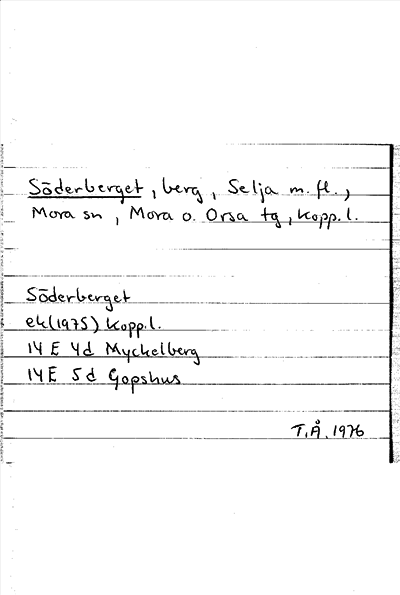 Söderberget, berg, Selja m. fl.,
Mora sn, Mora o. Orsa tg, Kopp. l.
Söderberget
ek (1975) Kopp. l.
14 E 4d Myckelberg
14 E 5d Gopshus
T.Å. 1976